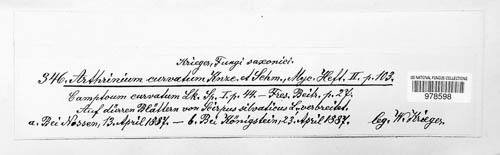 Krieger, Fungi saxonici.
346. Arthrinium curvatum Kunze. et Schm., Myc. Heft. II. p. 103.
Camptoum curvatum Lk. Sp. I. p. 44. — Fres. Beitr. p. 27.
Auf dürren Blättern von Scirpus silvaticus L. verbreitet.
a. Bei Nossen, 13. April 1887. — b. Bei Königstein, 23. April 1887. leg. W. Krieger.
US NATIONAL FUNGUS COLLECTIONS
978598